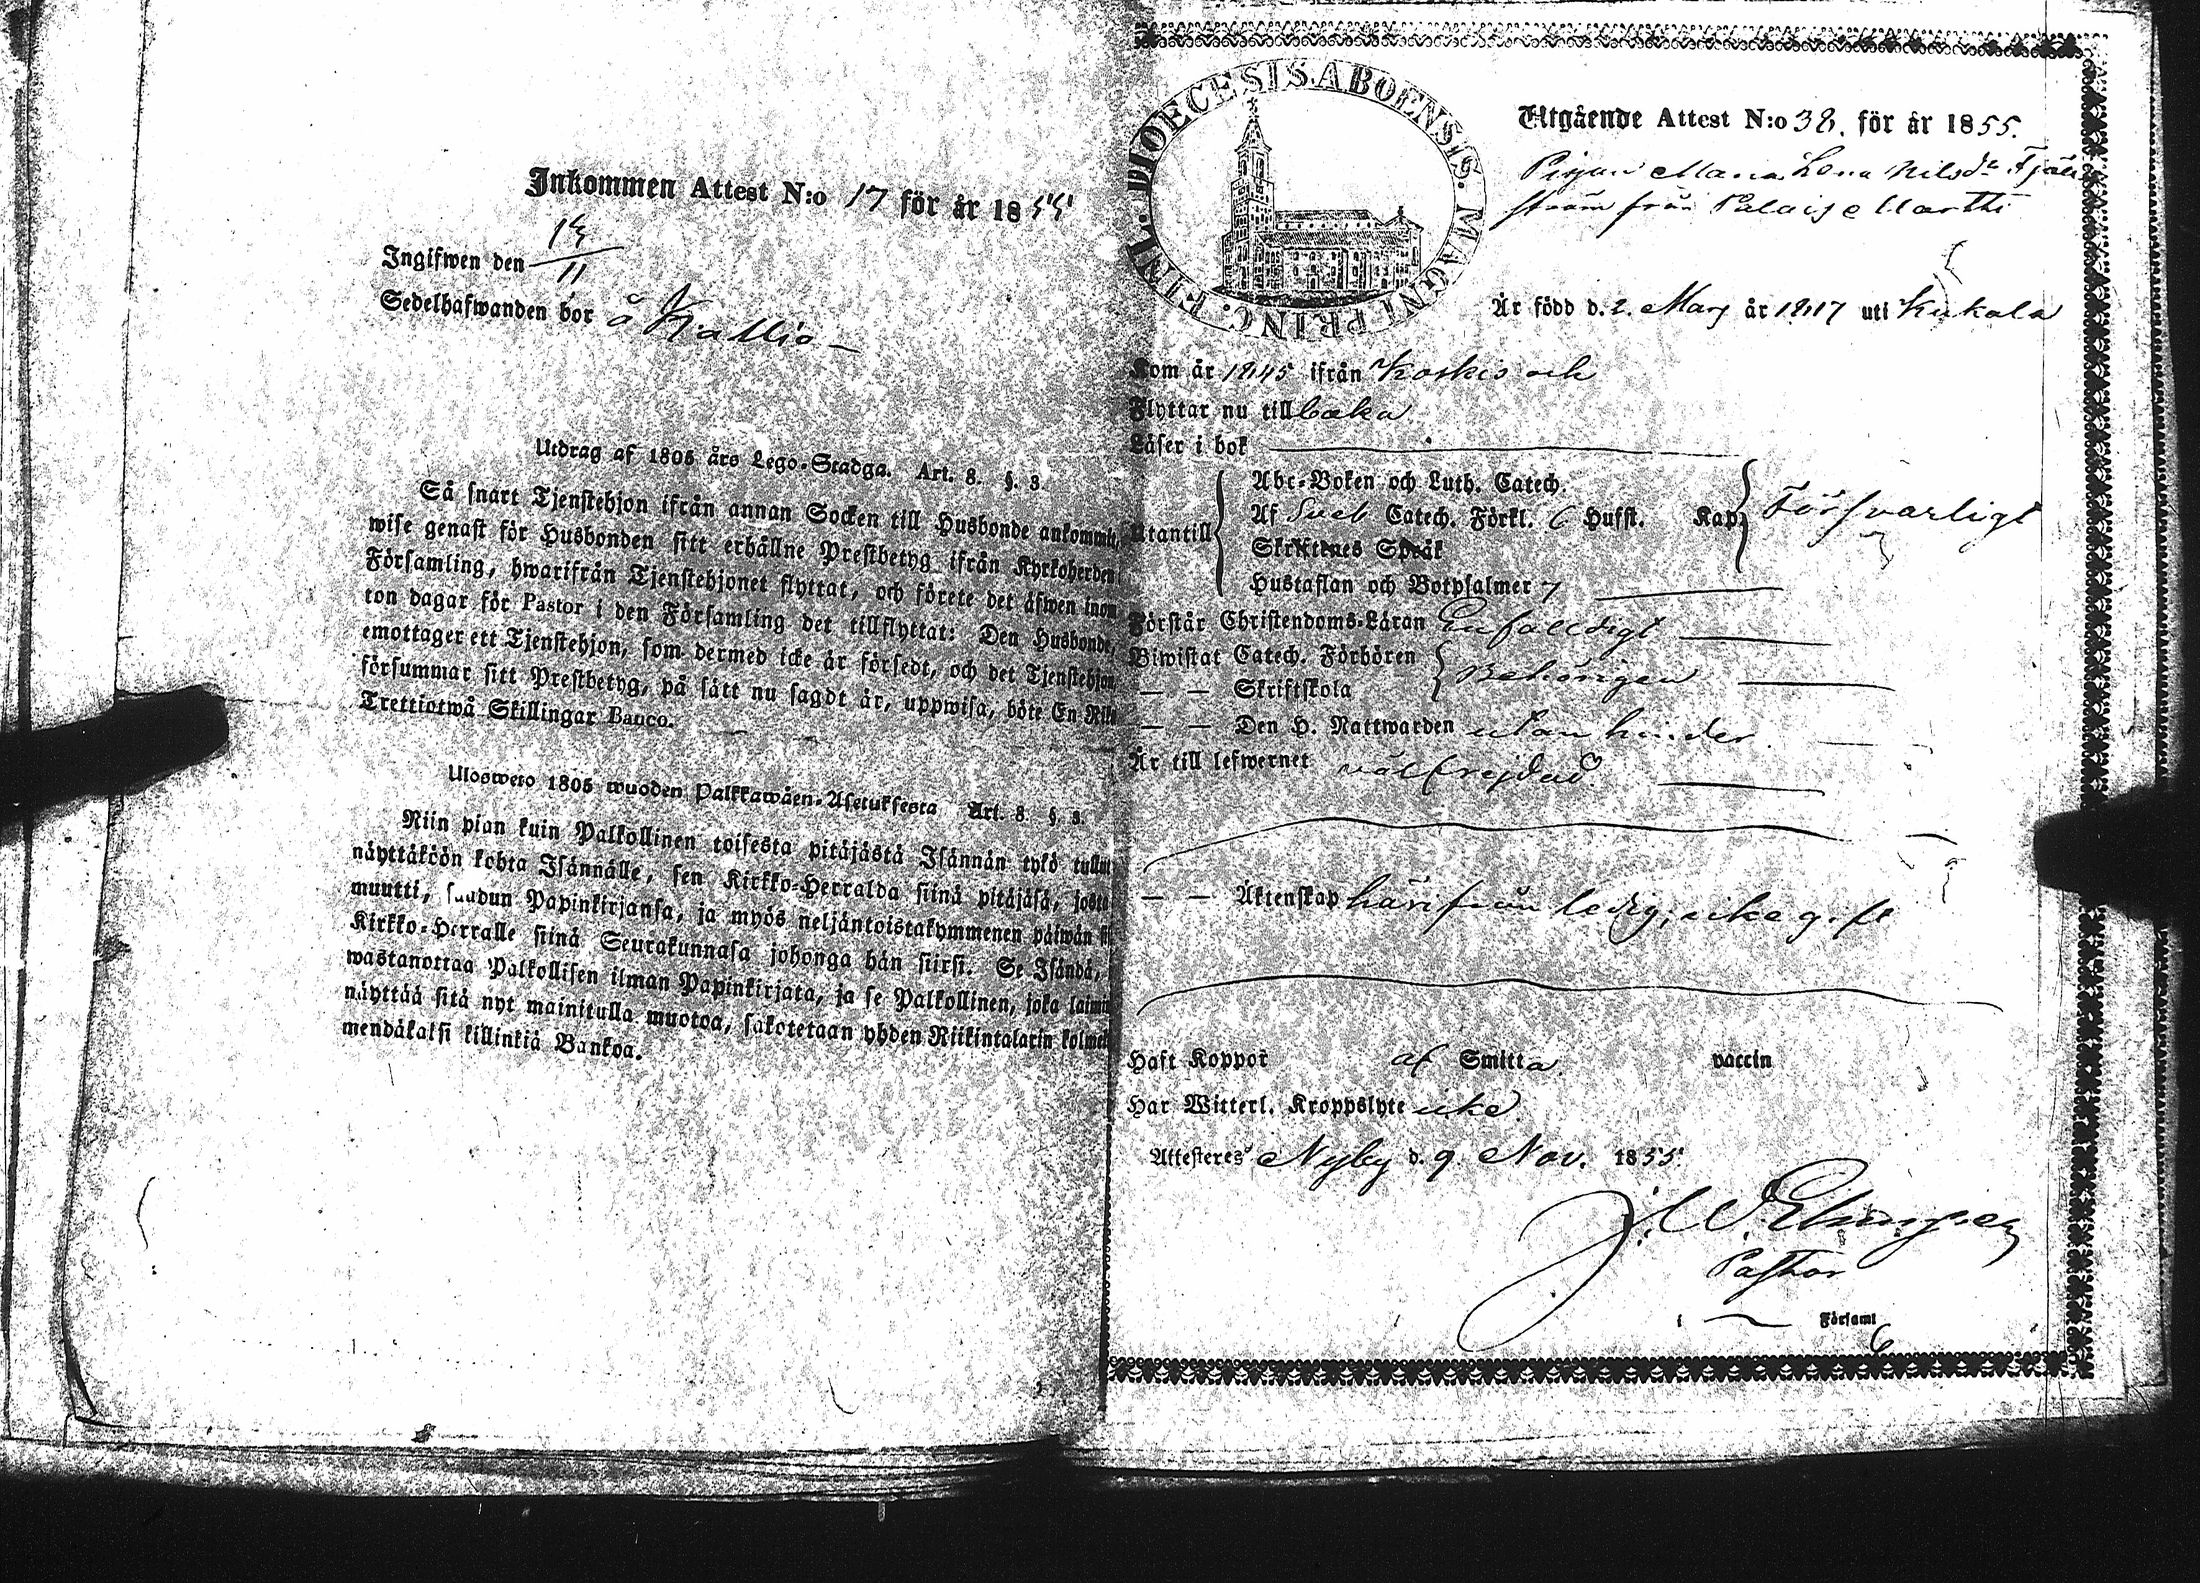 Inkommen Attest N:o 17 för år 1855
Ingifwen den 13/11
Sedelhafwanden bor å Kallio
Utdrag af 1805 års Lego-Stadga. Art. 8. §. 3.
Så snart Tjenstehjon ifrån annan Socken till Husbonde ankommit,
wise genast för Husbonden sitt erhållne Prestbetyg ifrån Kyrkoherden
Församling, hwarifrån Tjenstehjonet flyttat, och förete det äfwen inom
ton dagar för Pastor i den Församling det tillflyttat: Den Husbonde,
emottager ett Tjenstehjon, som dermed icke är försedt, och det Tjenstehjon
försummar sitt Prestbetyg, på sätt nu sagdt är, uppwisa, böte En Riks
Trettiotwå Skillingar Banco.
Ulosweto 1805 wuoden Palkkawäen-Asetuksesta Art. 8 §. 3.
Niin pian kuin Palkollinen toisesta pitäjästä Isännän tykö tullut
näyttäköön kohta Isännälle, sen Kirkko-Herralda siinä pitäjäsä, josta
muutti, saadun Papinkirjansa, ja myös neljäntoistakymmenen päiwän si
Kirkko-Herralle siinä Seurakunnasa johonga hän siirsi. Se Isändä,
wastanottaa Palkollisen ilman Papinkirjata, ja se Palkollinen, joka laimin
näyttää sitä nyt mainitulla muotoa, sakotetaan yhden Riikintalarin kolme
mendäkaksi killinkiä Bankoa.
FINL. DIOECESIS ABOENSIS. MAGNI PRINC.
Utgående Attest N:o 38. för år 1855.
Pigan Maria Lena Nilsdr Fjäll
ström från Palais Martti
Är född d. 2. Mars år 1817 uti Kukola
Kom år 1845 ifrån Koskis och
Flyttar nu tillbaka
Läser i bok
Utantill
Abc-Boken och Luth. Catech.
Af Sveb Catech. Förkl. 6 Hufst. Kap. Försvarligt
Skriftenes Språk
Hustaflan och Botpsalmer 7
Förstår Christendoms-Läran Enfaldigt
Biwistat Catech. Förhören
— — Skriftskola Behörigen
— — Den H. Nattwarden utan hinder.
Är till lefwernet välfrejdad
— — Äktenskap härifrån ledig, icke gift
Haft Koppor af Smitta vaccin
Har Witterl. Kroppslyte icke
Attesteres Nyby d. 9 Nov. 1855.
J. W.
Pastor
i Församl
6